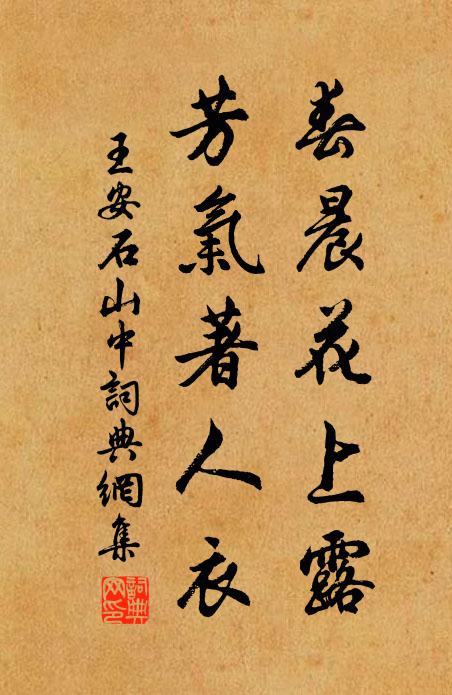 春晨花上露
芳氣著人衣
王安石山中詞典網集
詞典網印